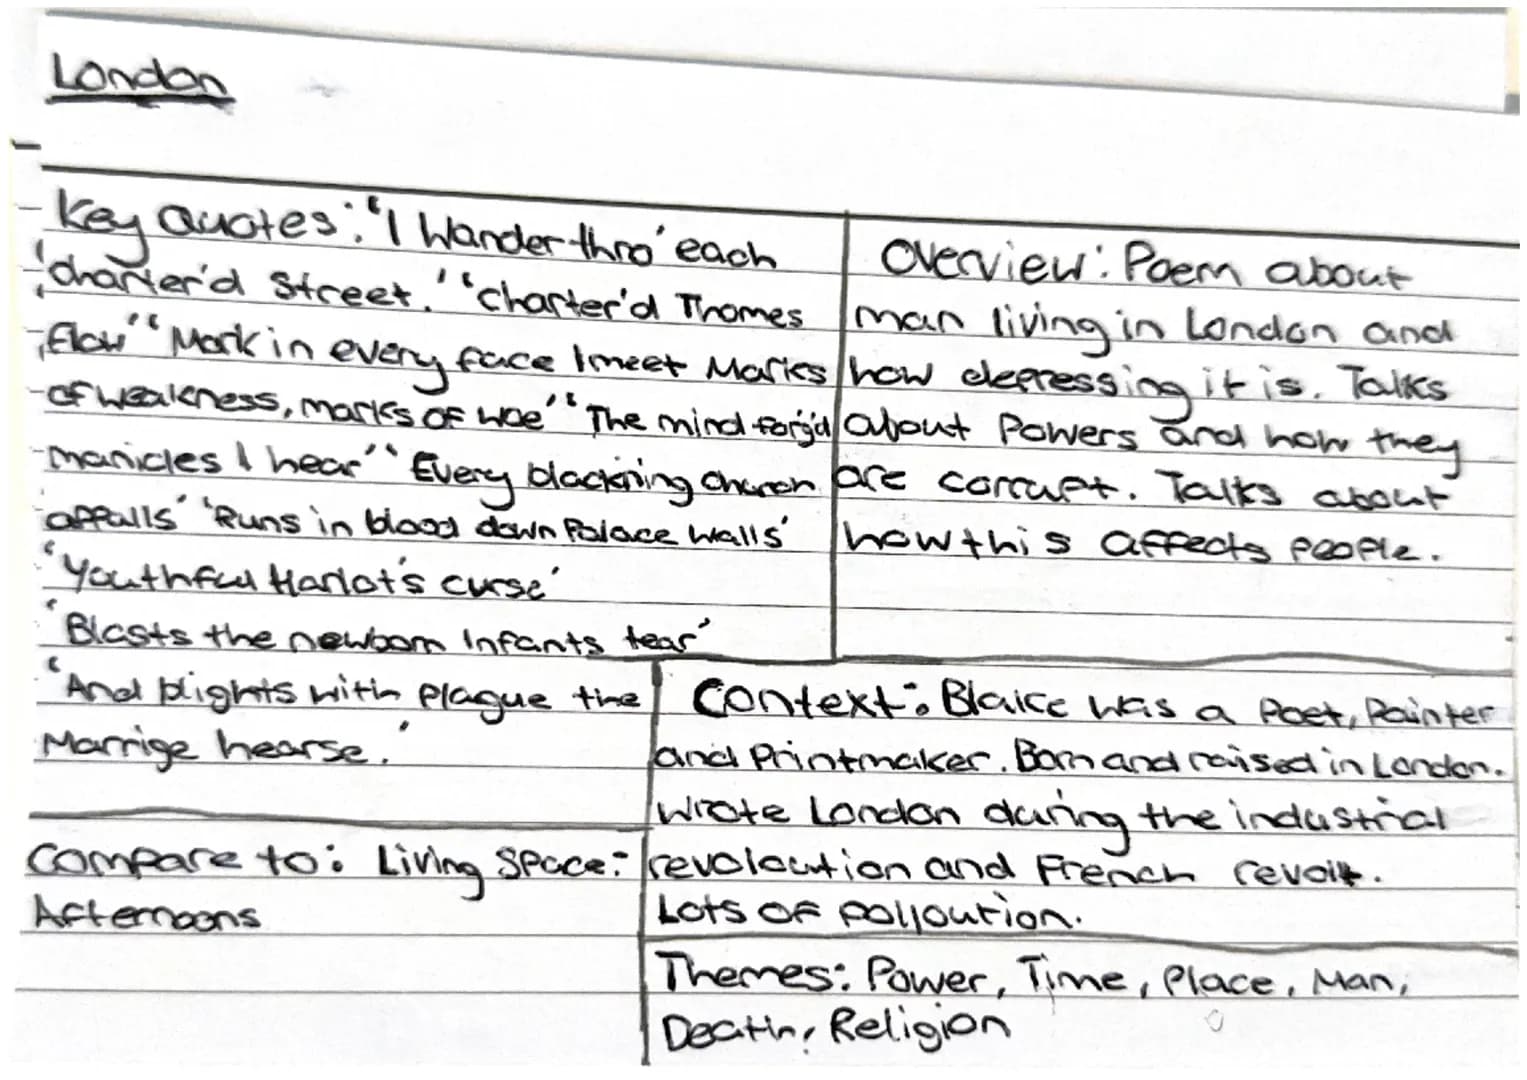 London
Key Quotes: "I Wander thro' each
'charter'd Street.' "Charter'd Thames
flow" "Mark in every face I meet Marks
of weakness, marks of woe" "The mind forg'd
manicles I hear" "Every blackning church
appalls' 'Runs in blood down Palace walls'
'Youthful Harlot's curse'
'Blasts the newborn Infants tear'
'And blights with plague the
Marrige hearse.'
Overview: Poem about
man living in London and
how depressing it is. Talks
about Powers and how they
are corrupt. Talks about
how this affects people.
Context: Blake was a Poet, Painter
and Printmaker. Born and raised in London.
Wrote London during the industrial
revoloution and French revolt.
Lots of polloution.
Compare to: Living Space:
Afternoons
Themes: Power, Time, Place, Man,
Death, Religion